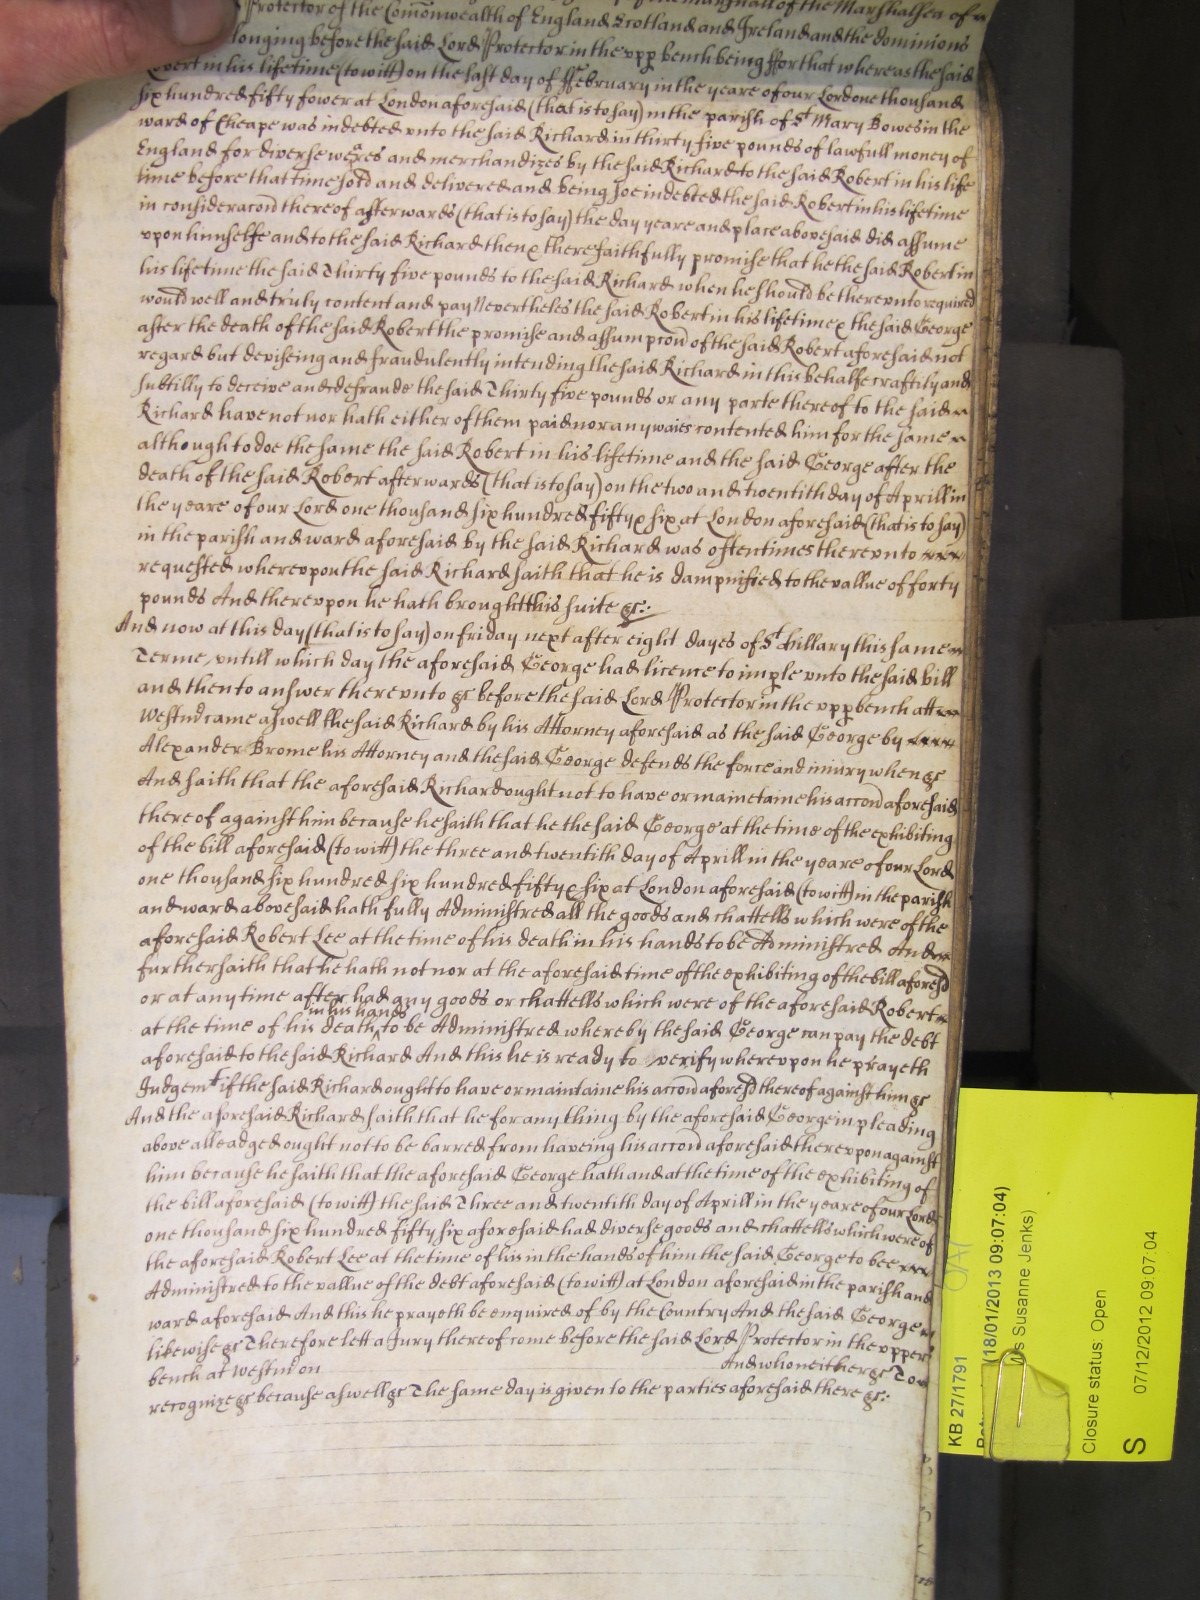 marshall of the Marshalsea of
Protector of the Com̄onwealth of England Scotland and Ireland and the dominions
longing before the said Lord Protector in the upp bench being ffor that whereas the said
Robert in his lifetime (to witt) on the last day of ffebruary in the yeare of our Lord one thousand
six hundred fifty fower at London aforesaid (that is to say) in the parish of St Mary Bowes in the
ward of Cheape was indebted vnto the said Richard in thirty five pounds of lawfull money of
England for diverse wares and merchandizes by the said Richard to the said Robert in his life
time before that time sold and delivered and being soe indebted the said Robert in his lifetime
in consideracon thereof afterwards (that is to say) the day yeare and place abovesaid did assume
vpon himselfe and to the said Richard then & there faithfully promise that he the said Robert in
his lifetime the said Thirty five pounds to the said Richard when he should be therevnto required
would well and truly content and pay Nevertheles the said Robert in his lifetime & the said George
after the death of the said Robert the promise and assumpcon of the said Robert aforesaid not
regard but deviseing and fraudulently intending the said Richard in this behalfe craftily and
subtilly to deceive and defraude the said Thirty five pounds or any parte thereof to the said
Richard have not nor hath either of them paid nor any waies contented him for the same
although to doe the same the said Robert in his lifetime and the said George after the
death of the said Robert afterwards (that is to say) on the two and twentith day of Aprill in
the yeare of our Lord one thousand six hundred fifty & six at London aforesaid (that is to say)
in the parish and ward aforesaid by the said Richard was oftentimes therevnto
requested wherevpon the said Richard saith that he is dampnified to the vallue of forty
pounds And therevpon he hath brought this suite &c:
And now at this day (that is to say) on friday next after eight dayes of St hillary this same
Terme, vntill which day the aforesaid George had licence to imple vnto the said bill
and then to answer therevnto &c before the said Lord Protector in the vpp bench att
Westm̄ came aswell the said Richard by his Attorney aforesaid as the said George by
Alexander Brome his Attorney and the said George defends the force and iniury when &c
And saith that the aforesaid Richard ought not to have or mainetaine his accon aforesaid
thereof against him because he saith that he the said George at the time of the exhibiting
of the bill aforesaid (to witt) the three and twentith day of Aprill in the yeare of our Lord
one thousand six hundred six hundred fifty & six at London aforesaid (to witt) in the parish
and ward abovesaid hath fully Administred all the goods and chattells which were of the
aforesaid Robert Lee at the time of his death in his hands to be Administred And
further saith that he hath not nor at the aforesaid time of the exhibiting of the bill aforesd
or at any time after had any goods or chattells which were of the aforesaid Robert
at the time of his death ^in his hands to be Administred whereby the said George can pay the debt
aforesaid to the said Richard And this he is ready to verify wherevpon he prayeth
Judgemt if the said Richard ought to have or maintaine his accon aforesd thereof against him &c
And the aforesaid Richard saith that he for any thing by the aforesaid George in pleading
above alleadged ought not to be barred from haveing his accon aforesaid therevpon against
him because he saith that the aforesaid George hath and at the time of the exhibiting of
the bill aforesaid (to witt) the said Three and twentith day of Aprill in the yeare of our Lord
one thousand six hundred fifty six aforesaid had diverse goods and chattells which were of
the aforesaid Robert Lee at the time of his in the hands of him the said George to bee
Administred to the vallue of the debt aforesaid (to witt) at London aforesaid in the parish and
ward aforesaid And this he prayeth be enquired of by the Country And the said George
likewise &c Therefore lett a Jury thereof come before the said Lord Protector in the vpper
bench at Westm̄ on And who neither &c To
recognize &c because aswell &c The same day is given to the parties aforesaid there &c:
KB 27/1791
(18/01/2013 09:07:04)
Ms Susanne Jenks)
Closure status: Open
S 07/12/2012 09:07:04